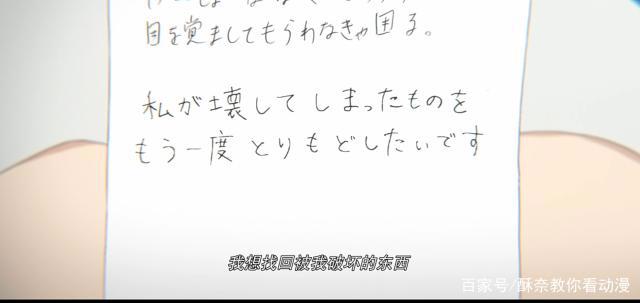 目を覚ましてもらわなきゃ困る。
私が壊してしまったものを
もう一度とりもどしたいです
我想找回被我破坏的东西
百家号/酥奈教你看动漫